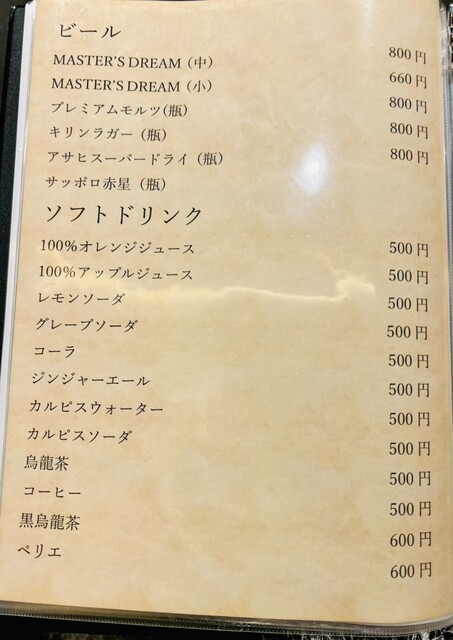 ビール
MASTER'S DREAM（中） 800円
MASTER'S DREAM（小） 660円
プレミアムモルツ(瓶) 800円
キリンラガー（瓶） 800円
アサヒスーパードライ（瓶） 800円
サッポロ赤星（瓶）
ソフトドリンク
100%オレンジジュース 500円
100%アップルジュース 500円
レモンソーダ 500円
グレープソーダ 500円
コーラ 500円
ジンジャーエール 500円
カルピスウォーター 500円
カルピスソーダ 500円
烏龍茶 500円
コーヒー 500円
黒烏龍茶 600円
ペリエ 600円